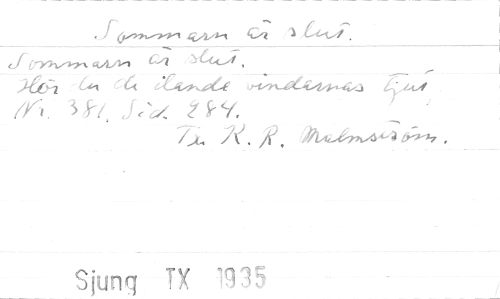 Sommarn är slut.
Sommarn är slut.
Hör du de ilande vindarnas tjut
Nr. 381. Sid. 284.
Te. K. R. Malmström.
Sjung TX 1935